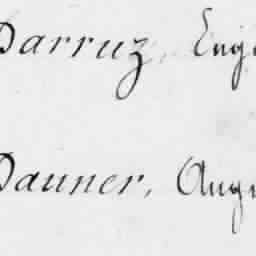 Darruz, Euge
Dauner, Augu